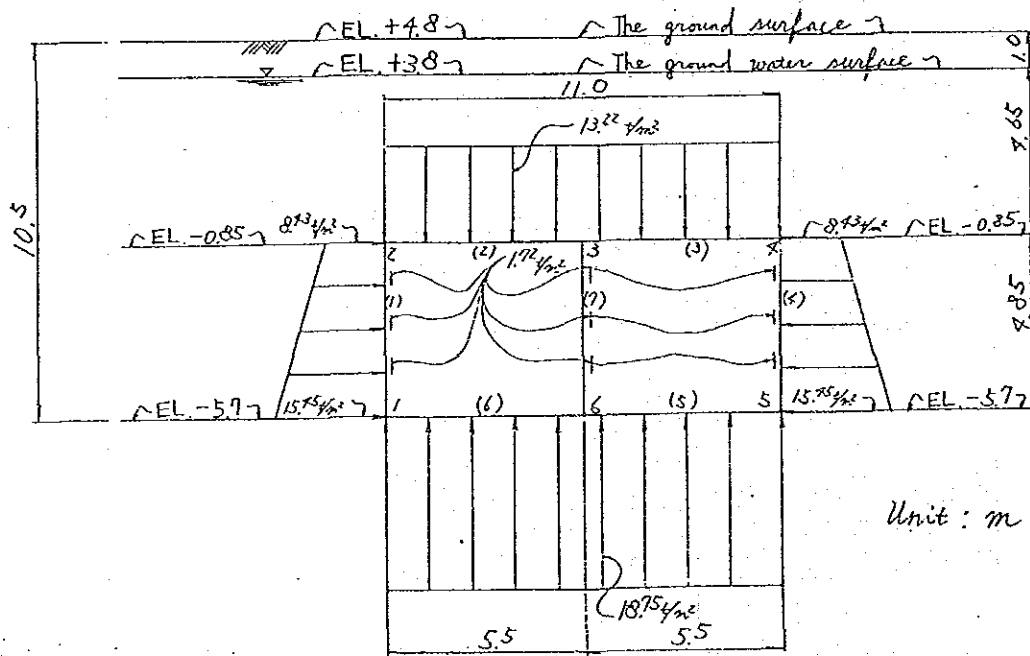 EL. +4.8 The ground surface
EL. +3.8 The ground water surface
1.0
11.0
13.22 t/m²
4.65
10.5
EL. -0.85 8.43 t/m²
8.43 t/m² EL. -0.85
2 (2) 1.72 t/m² 3 (3) 4
(1) (7) (4)
4.85
EL. -5.7 15.45 t/m²
15.45 t/m² EL. -5.7
1 (6) 6 (5) 5
Unit : m
18.75 t/m²
5.5 5.5